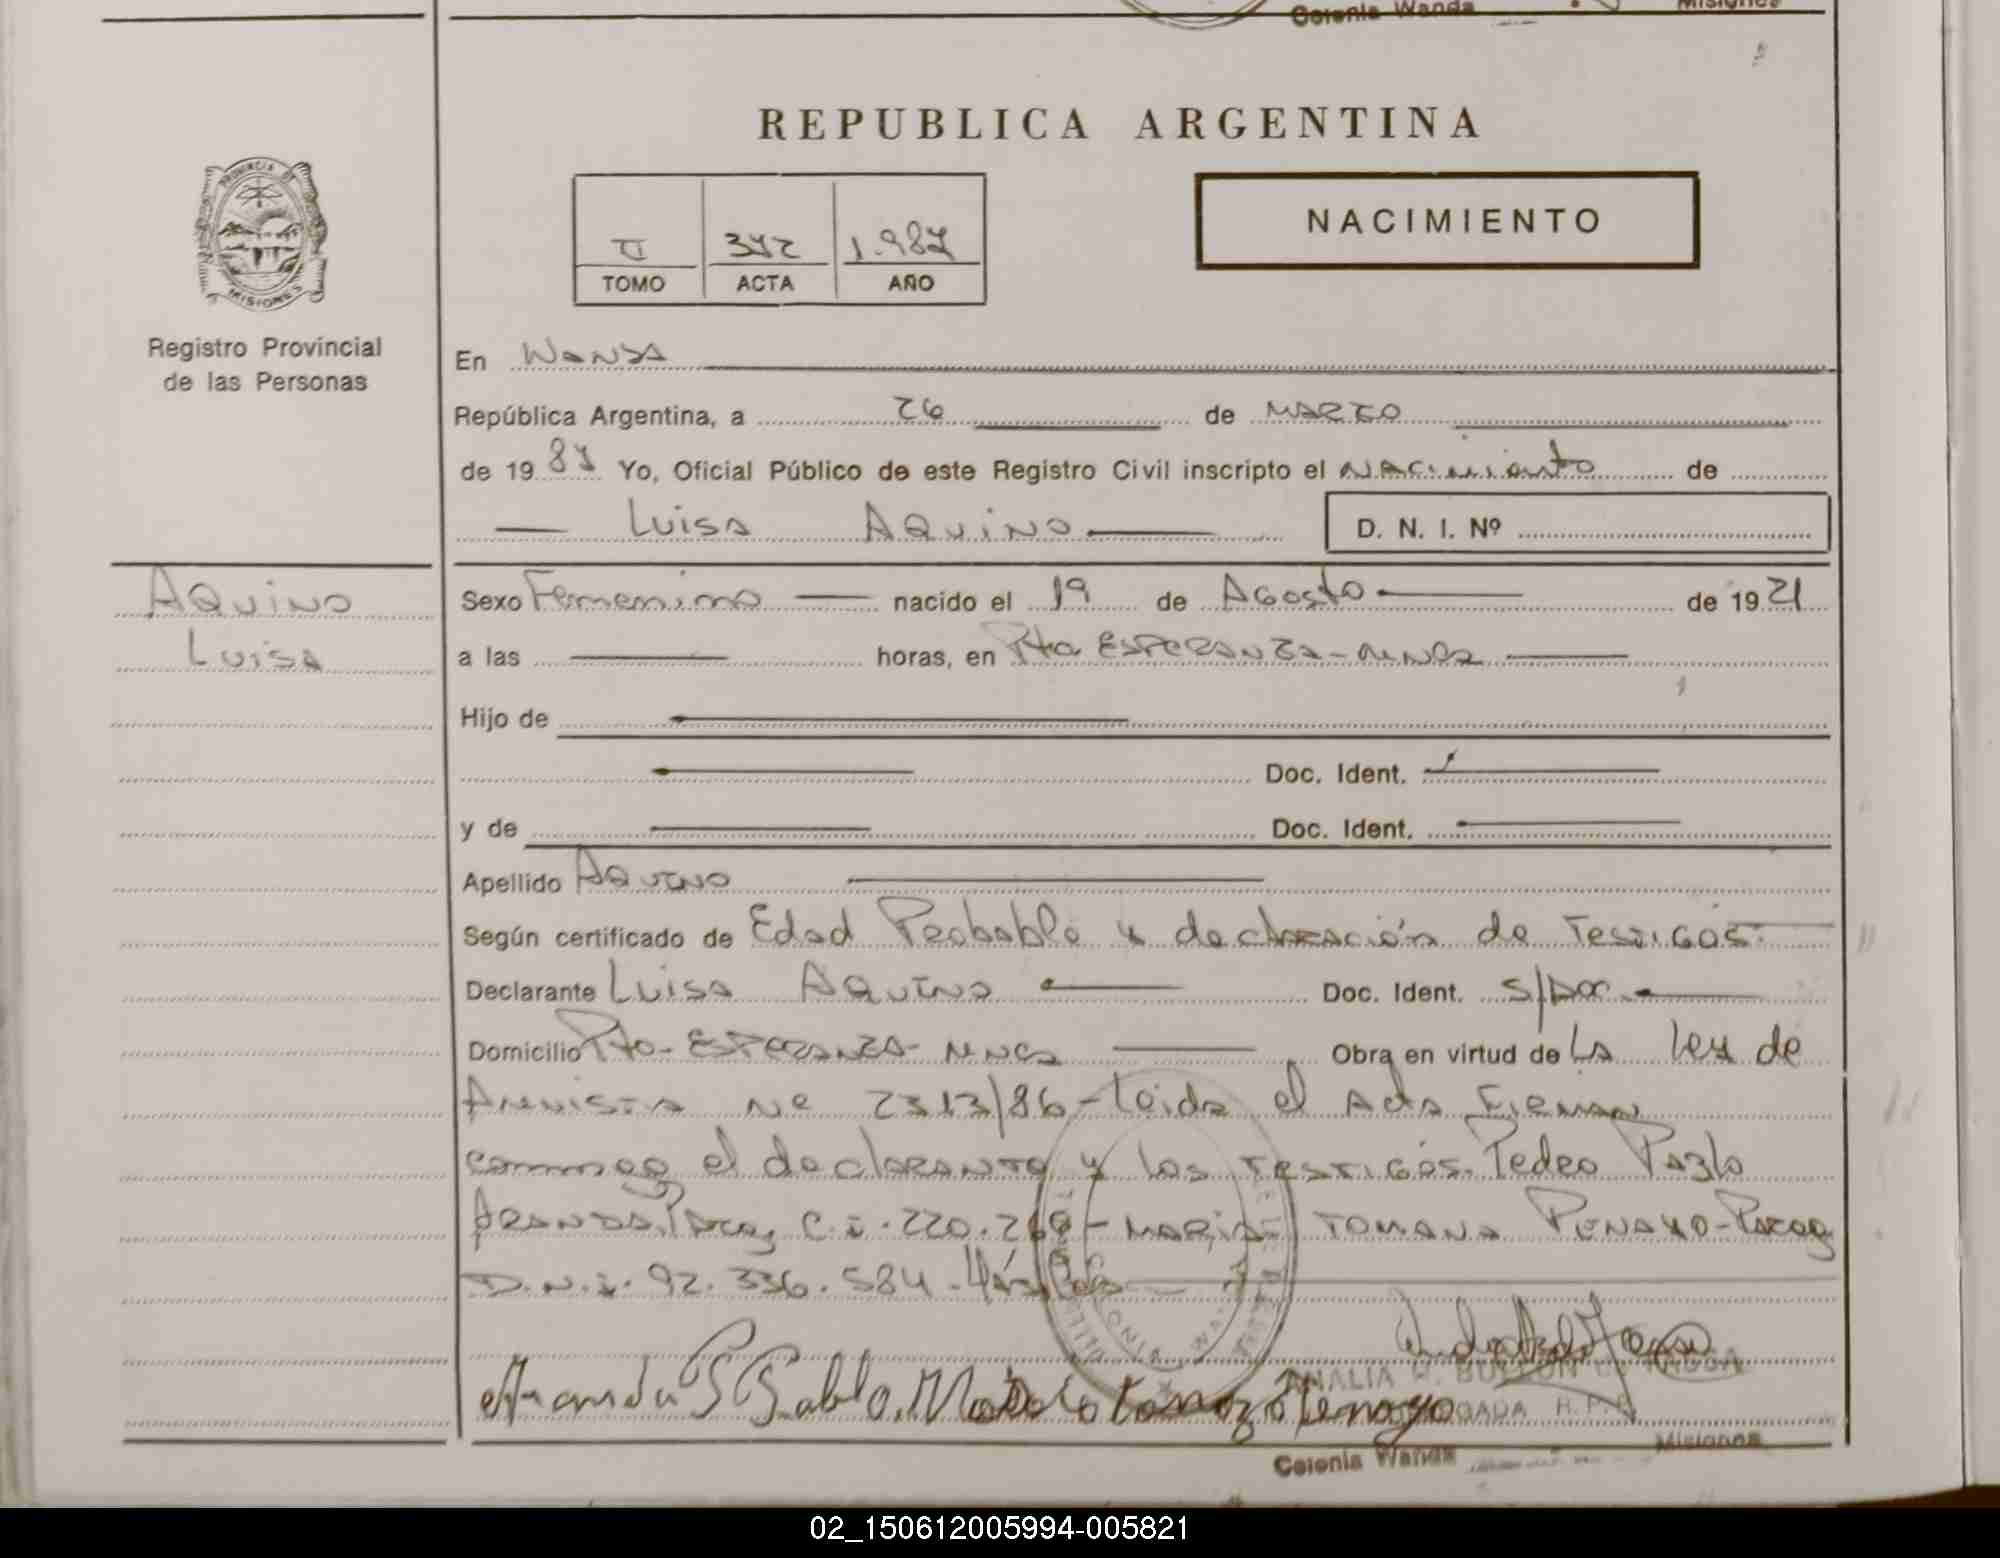 Colonia Wanda Misiones
REPUBLICA ARGENTINA
PROVINCIA DE
MISIONES
Registro Provincial
de las Personas
II 372 1.987
TOMO ACTA AÑO
NACIMIENTO
En Wanda
República Argentina, a 26 de MARZO
de 1987 Yo, Oficial Público de este Registro Civil inscripto el NAcimiento de
Luisa Aquino D. N. I. Nº
Aquino
Luisa
Sexo Femenino nacido el 19 de Agosto de 1921
a las horas, en Pto ESPERANZA-MNES
Hijo de
Doc. Ident.
y de Doc. Ident.
Apellido Aquino
Según certificado de Edad Probable y declaración de Testigos.
Declarante Luisa Aquino Doc. Ident. S/Doc
Domicilio Pto-ESPERANZA-MNES Obra en virtud de La Ley de
Amnistia Nº 2313/86-Leida el Acta Firman
conmigo el declarante y los testigos. Pedro Pablo
Aranda, Parag, C.I. 220.268-MARIA TOMASA PENAYO-Parag
D.N.I. 92.336.584-
Aranda P Pablo.
ANALIA
H. P. P.
Colonia Wanda Misiones
02_150612005994-005821